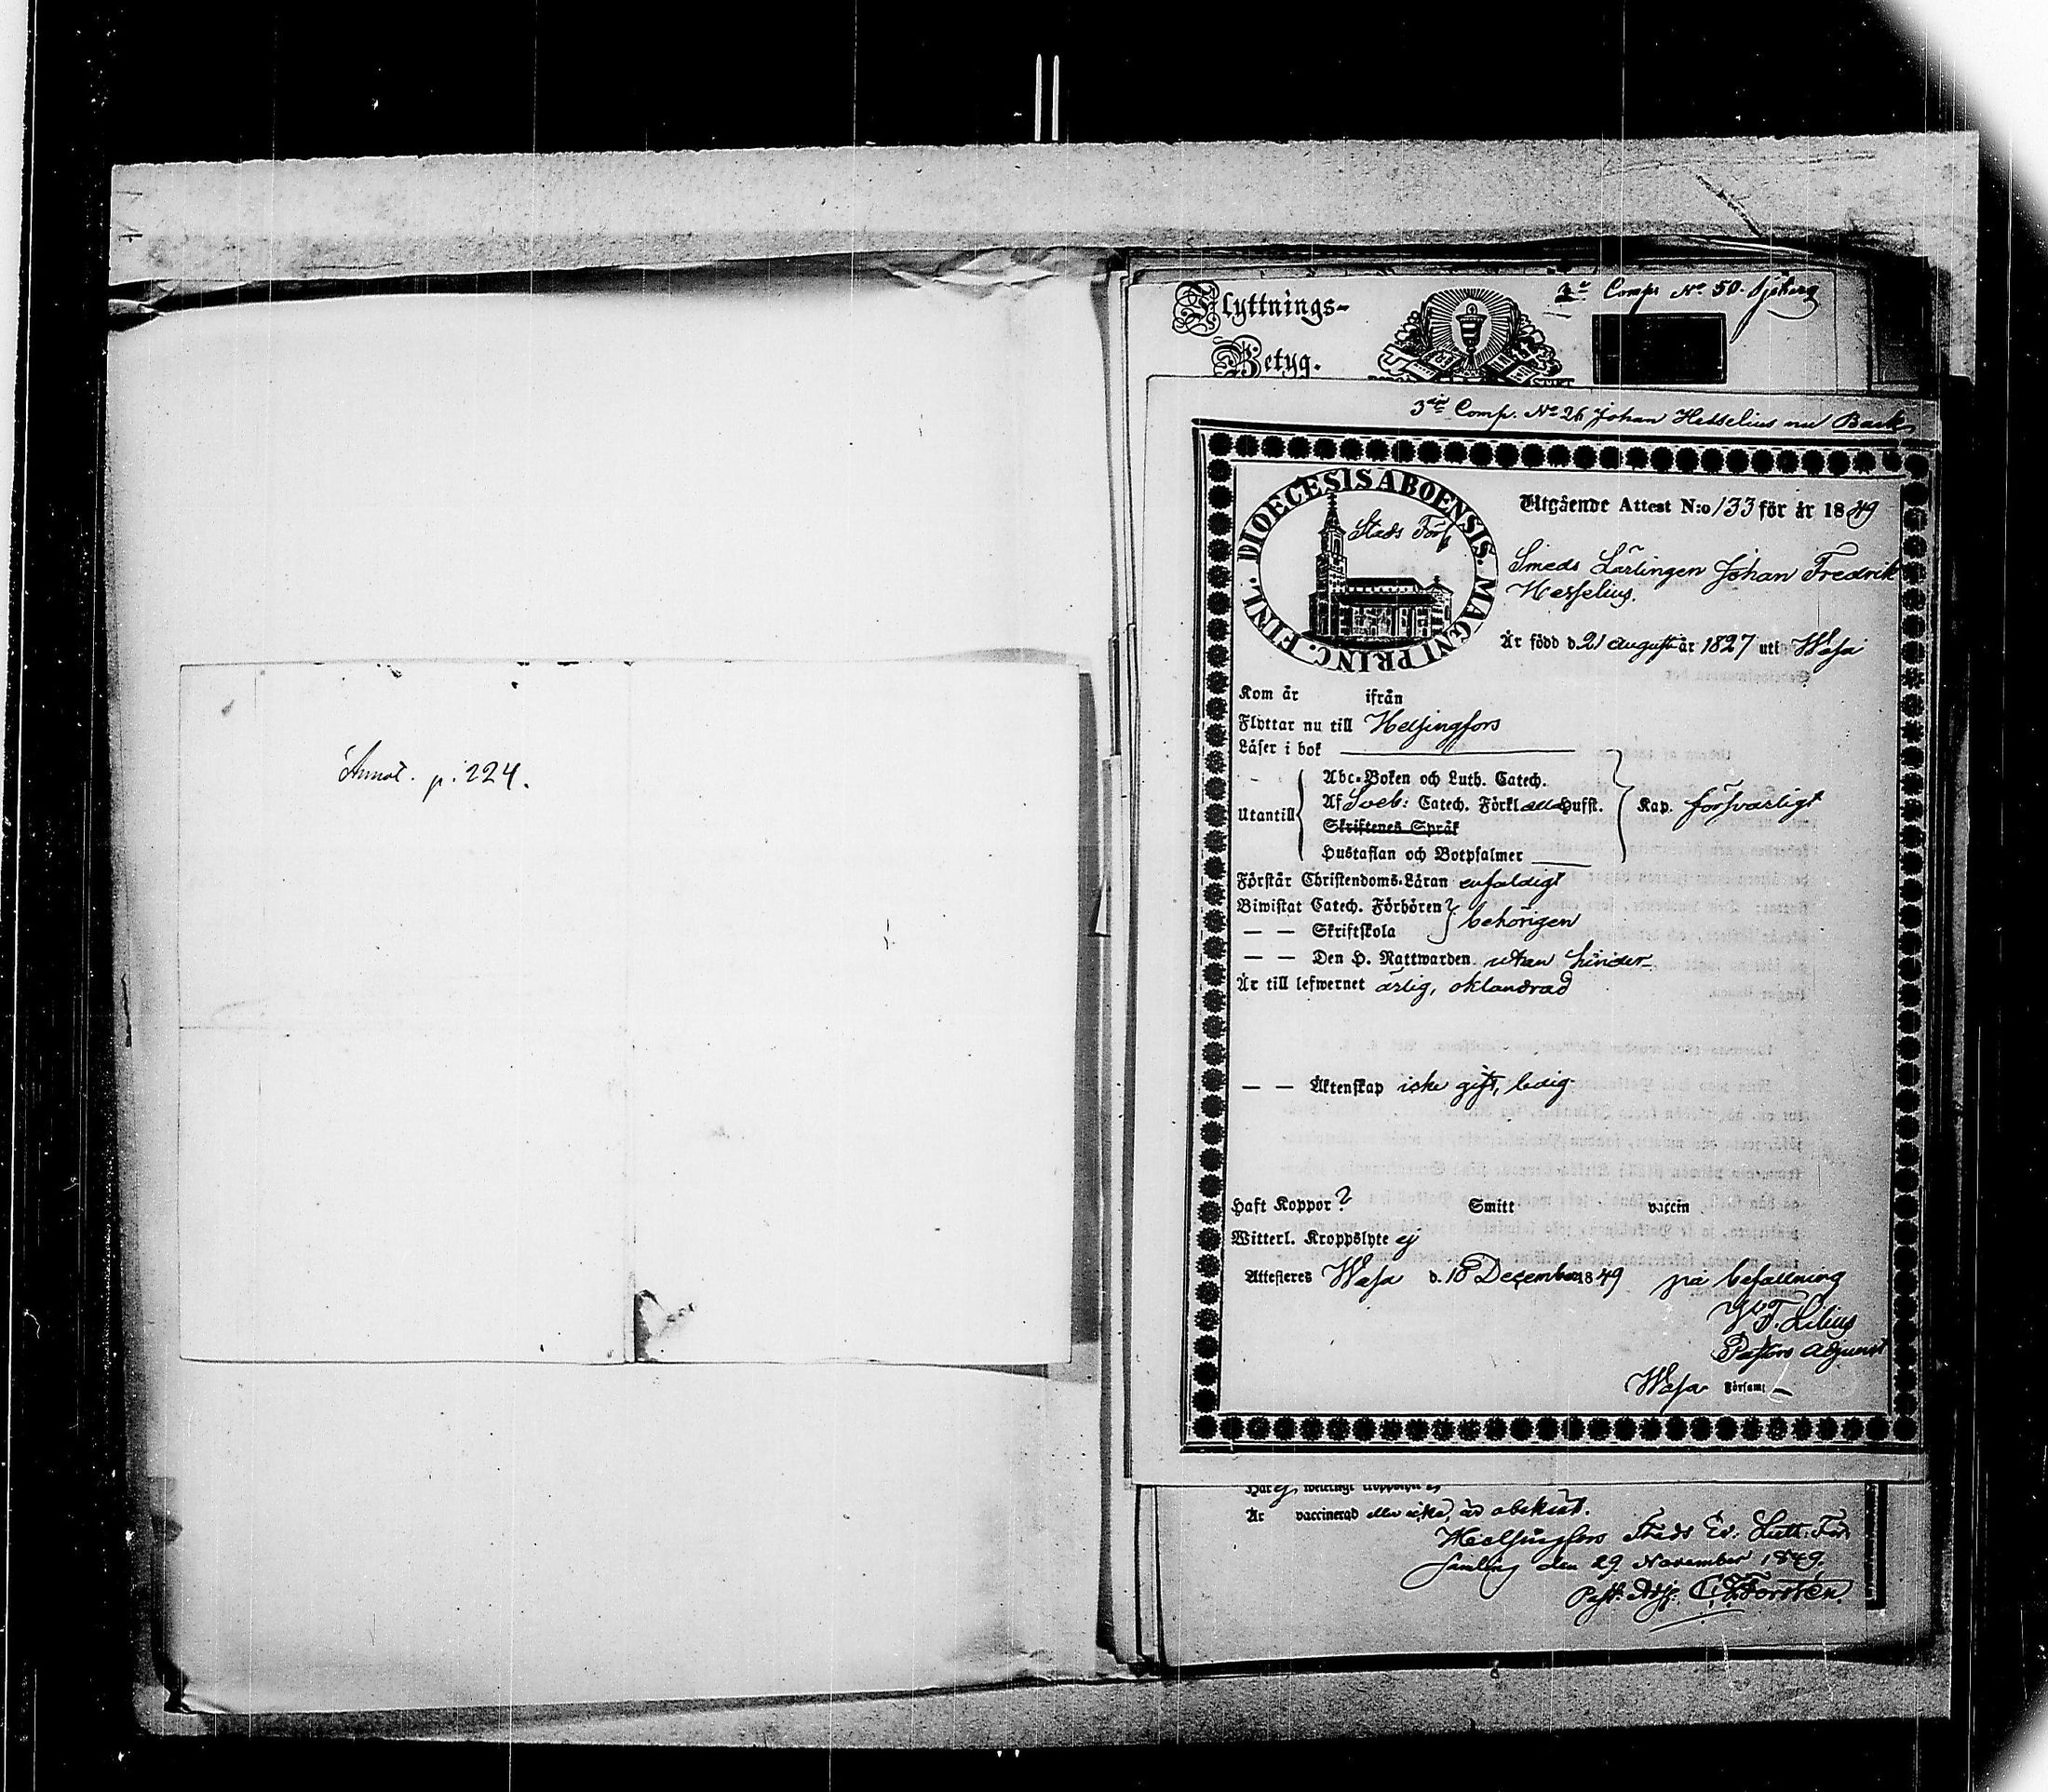 Annot. p. 224.
Flyttnings-
Betyg.
Comp. No 50.
3die Comp. No 26 Johan Hesselius nu Back
DIOECESIS ABOENSIS. MAGNI PRINC. FINL.
Stads Förs
Utgående Attest N:o 133 för år 1849
Smeds Lärlingen Johan Fredrik
Hesselius.
Är född d. 21 augusti år 1827 uti Wasa
Kom år ifrån
Flyttar nu till Helsingfors
Läser i bok
Utantill
Abc-Boken och Luth. Catech.
Af Sveb: Catech. Förkl alla Hufst.
Skriftenes Språk
Hustaflan och Botpsalmer
Kap. försvarligt
Förstår Christendoms-Läran enfaldigt
Biwistat Catech. Förhören
— — Skriftskola
behörigen
— — Den H. Nattwarden utan hinder
Är till lefwernet ärlig, oklandrad
— — Äktenskap icke gift, ledig
Haft Koppor? Smitt vaccin
Witterl. Kroppslyte ej
Attesteres Wasa d. 18 December 1849 på befallning
F. Lilius
Pastors adjunct
Wasa Församl
Är vaccinerad eller icke, är obekant.
Helsingfors Stads Ev. Luth. För
samling den 29 November 1849.
Past. Adj. C. F. Forstén.